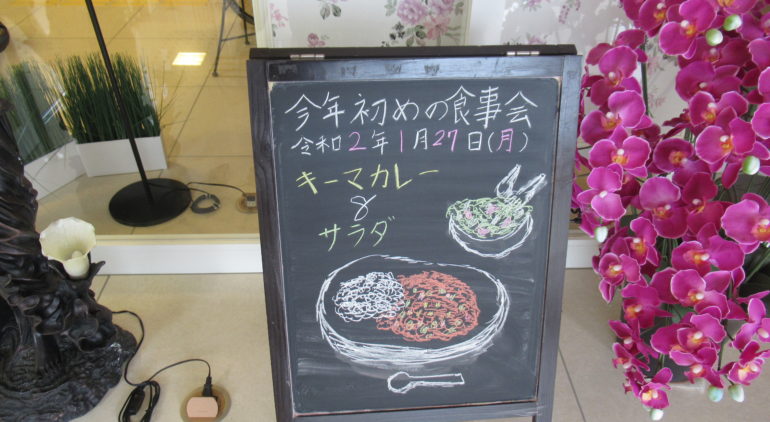 今年初めの食事会
令和2年1月27日(月)
キーマカレー
&
サラダ